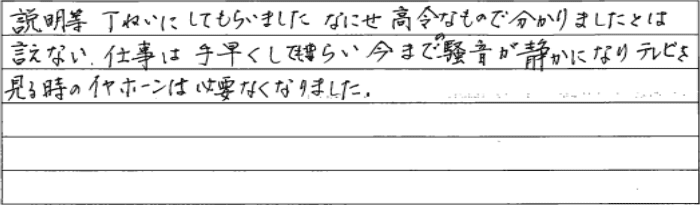 説明等 丁ねいにしてもらいました なにせ高令なもので分かりましたとは
言えない. 仕事は手早くして貰らい今までの騒音が静かになりテレビを
見る時のイヤホーンは必要なくなりました.